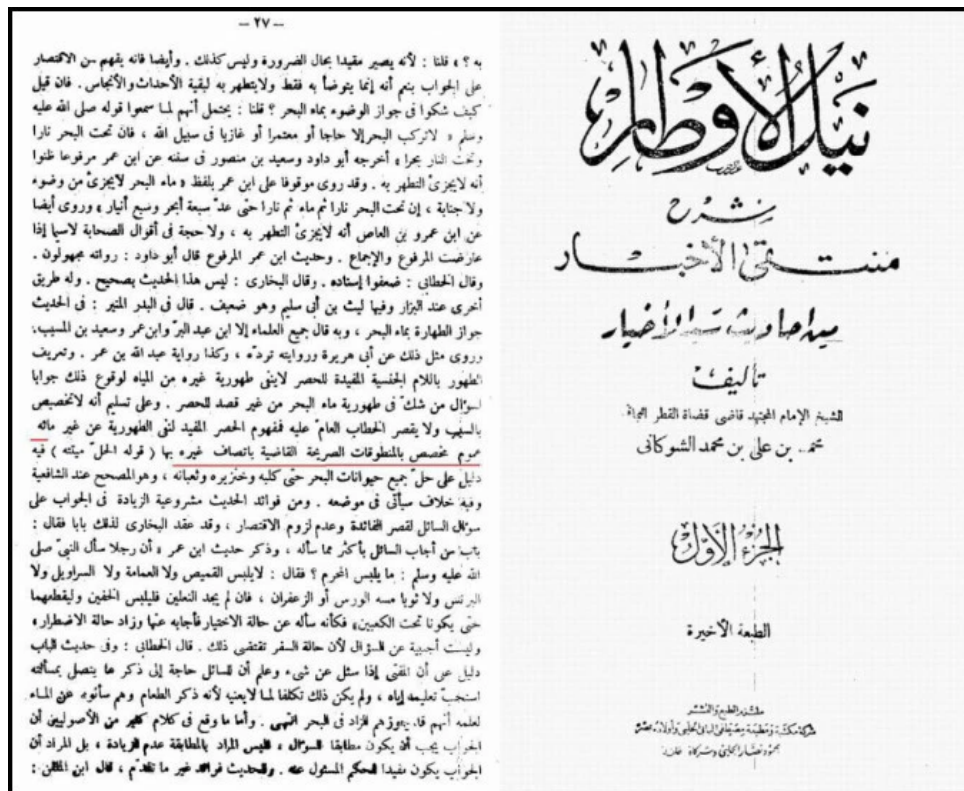 — ٢٧ —
به ؟ » قلنا : لأنه يصير مقيدا بحال الضرورة وليس كذلك . وأيضا فانه يفهم من الاقتصار
على الجواب بنعم أنه إنما يتوضأ به فقط ولا يتطهر به لبقية الأحداث والأنجاس . فان قيل
كيف شكوا في جواز الوضوء بماء البحر ؟ قلنا : يحتمل أنهم لما سمعوا قوله صلى الله عليه
وسلم « لا تركب البحر إلا حاجا أو معتمرا أو غازيا في سبيل الله ، فان تحت البحر نارا
وتحت النار بحرا » أخرجه أبو داود وسعيد بن منصور في سننه عن ابن عمر مرفوعا ظنوا
أنه لا يجزئ التطهر به . وقد روى موقوفا على ابن عمر بلفظ « ماء البحر لا يجزئ من وضوء
ولا جنابة ، إن تحت البحر نارا ثم ماء ثم نارا حتى عد سبعة أبحر وسبع أنيار » وروى أيضا
عن ابن عمرو بن العاص أنه لا يجزئ التطهر به ، ولا حجة في أقوال الصحابة لاسيما إذا
عارضت المرفوع والإجماع . وحديث ابن عمر المرفوع قال أبو داود : رواته مجهولون .
وقال الخطابي : ضعفوا إسناده . وقال البخارى : ليس هذا الحديث بصحيح . وله طريق
أخرى عند البزار وفيها ليث بن أبي سليم وهو ضعيف . قال في البدر المنير : في الحديث
جواز الطهارة بماء البحر ، وبه قال جميع العلماء إلا ابن عبد البر وابن عمر وسعيد بن المسيب.
وروى مثل ذلك عن أبي هريرة وروايته ترده ، وكذا رواية عبد الله بن عمر . وتعريف
الطهور باللام الجنسية المفيدة للحصر لا ينفى طهورية غيره من المياه لوقوع ذلك جوابا
لسؤال من شك في طهورية ماء البحر من غير قصد للحصر . وعلى تسليم أنه لا تخصيص
بالسبب ولا يقصر الخطاب العام عليه فمفهوم الحصر المفيد لنفى الطهورية عن غير مائه
عموم مخصص بالمنطوقات الصريحة القاضية باتصاف غيره بها ( قوله الحل ميتته ) فيه
دليل على حل جميع حيوانات البحر حتى كلبه وخنزيره وثعبانه ، وهو المصحح عند الشافعية
وفيه خلاف سيأتي في موضعه . ومن فوائد الحديث مشروعية الزيادة في الجواب على
سؤال السائل لقصد الفائدة وعدم لزوم الاقتصار ، وقد عقد البخارى لذلك بابا فقال :
باب من أجاب السائل بأكثر مما سأله ، وذكر حديث ابن عمر « أن رجلا سأل النبي صلى
الله عليه وسلم : ما يلبس المحرم ؟ فقال : لا يلبس القميص ولا العمامة ولا السراويل ولا
البرنس ولا ثوبا مسه الورس أو الزعفران ، فان لم يجد النعلين فليلبس الخفين وليقطعهما
حتى يكونا تحت الكعبين» فكأنه سأله عن حالة الاختيار فأجابه عنها وزاد حالة الاضطرار»
وليست أجنبية عن السؤال لأن حالة السفر تقتضى ذلك . قال الخطابي : وفي حديث الباب
دليل على أن المفتى إذا سئل عن شيء وعلم أن للسائل حاجة إلى ذكر ما يتصل بمسألته
استحب تعليمه إياه ، ولم يكن ذلك تكلفا لما لا يعنيه لأنه ذكر الطعام وهم سألوه عن الماء
لعلمه أنهم قد يعوزهم الزاد في البحر انتهى . وأما ما وقع في كلام كثير من الأصوليين أن
الجواب يجب أن يكون مطابقا للسؤال ، فليس المراد بالمطابقة عدم الزيادة ، بل المراد أن
الجواب يكون مفيدا للحكم المسئول عنه . وللحديث فوائد غير ما تقدم ، قال ابن الملقن :
نيل الأوطار
شرح
منتقى الأخبار
من أحاديث سيد الأخيار
تأليف
الشيخ الإمام المجتهد قاضى قضاة القطر اليمانى
محمد بن على بن محمد الشوكانى
الجزء الأول
الطبعة الأخيرة
ملتزم الطبع والنشر
شركة مكتبة ومطبعة مصطفى البابى الحلبى وأولاده بمصر